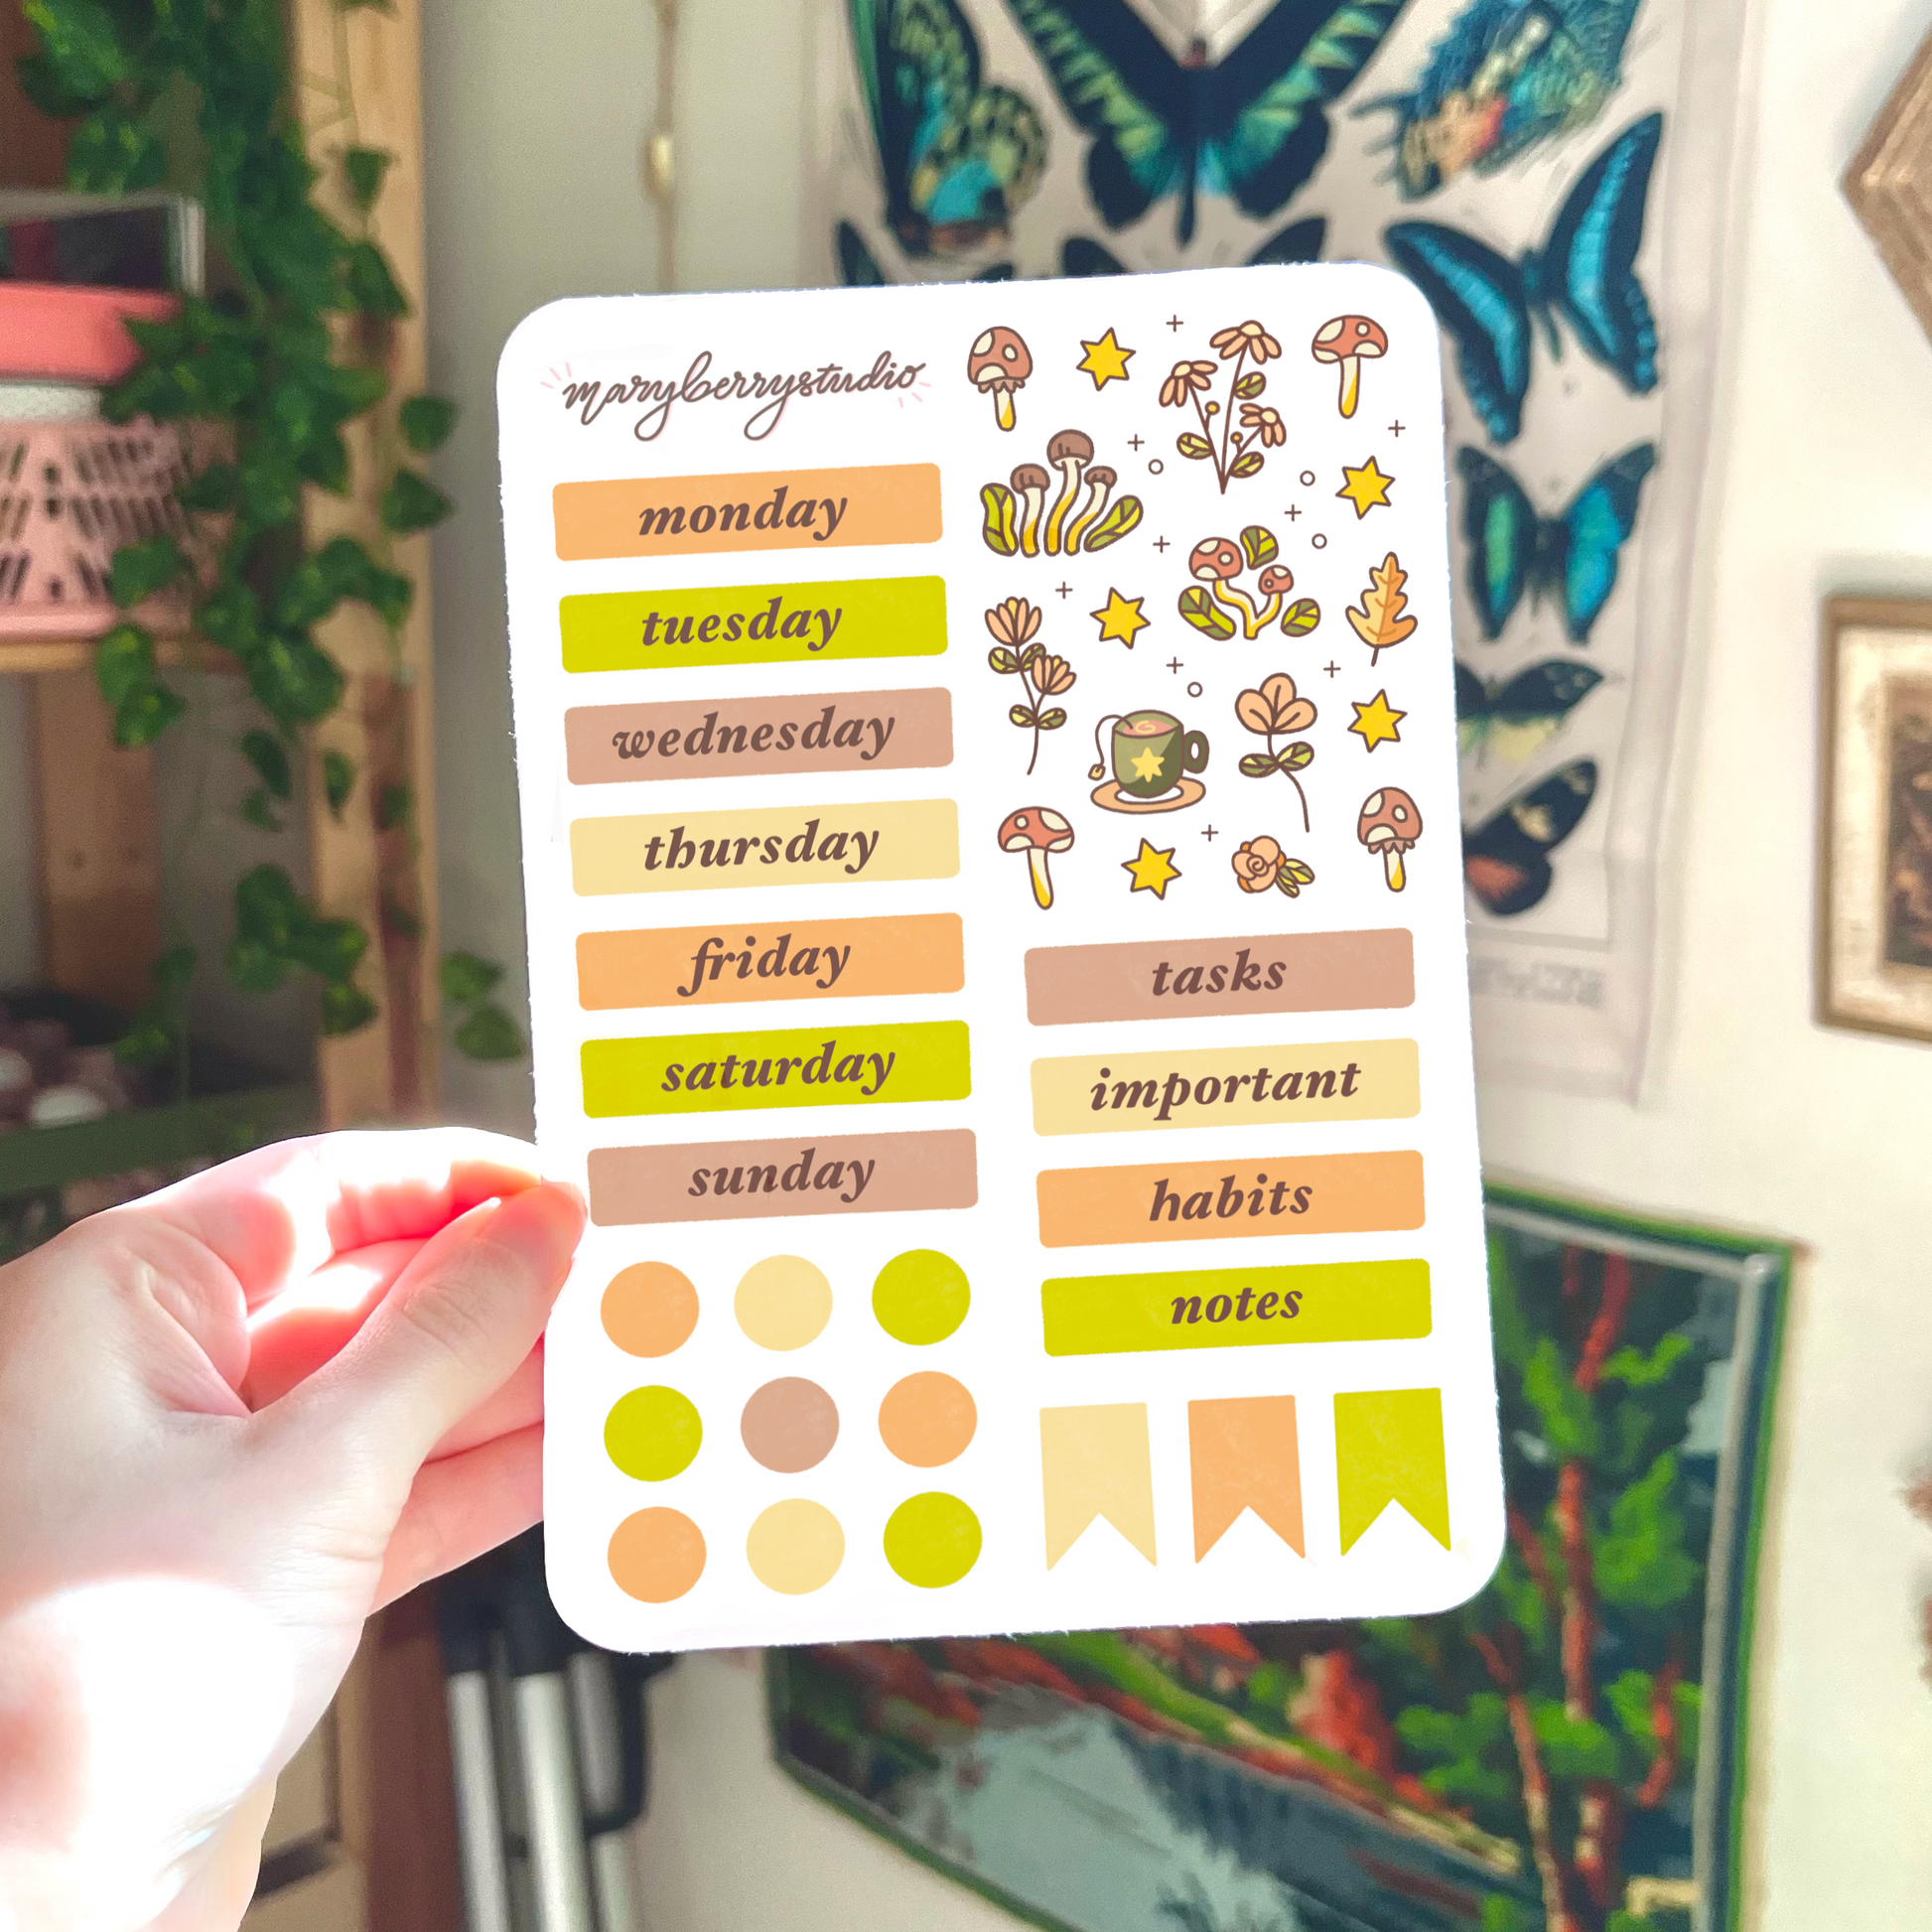 maryberrystudio
monday
tuesday
wednesday
thursday
friday
saturday
sunday
tasks
important
habits
notes